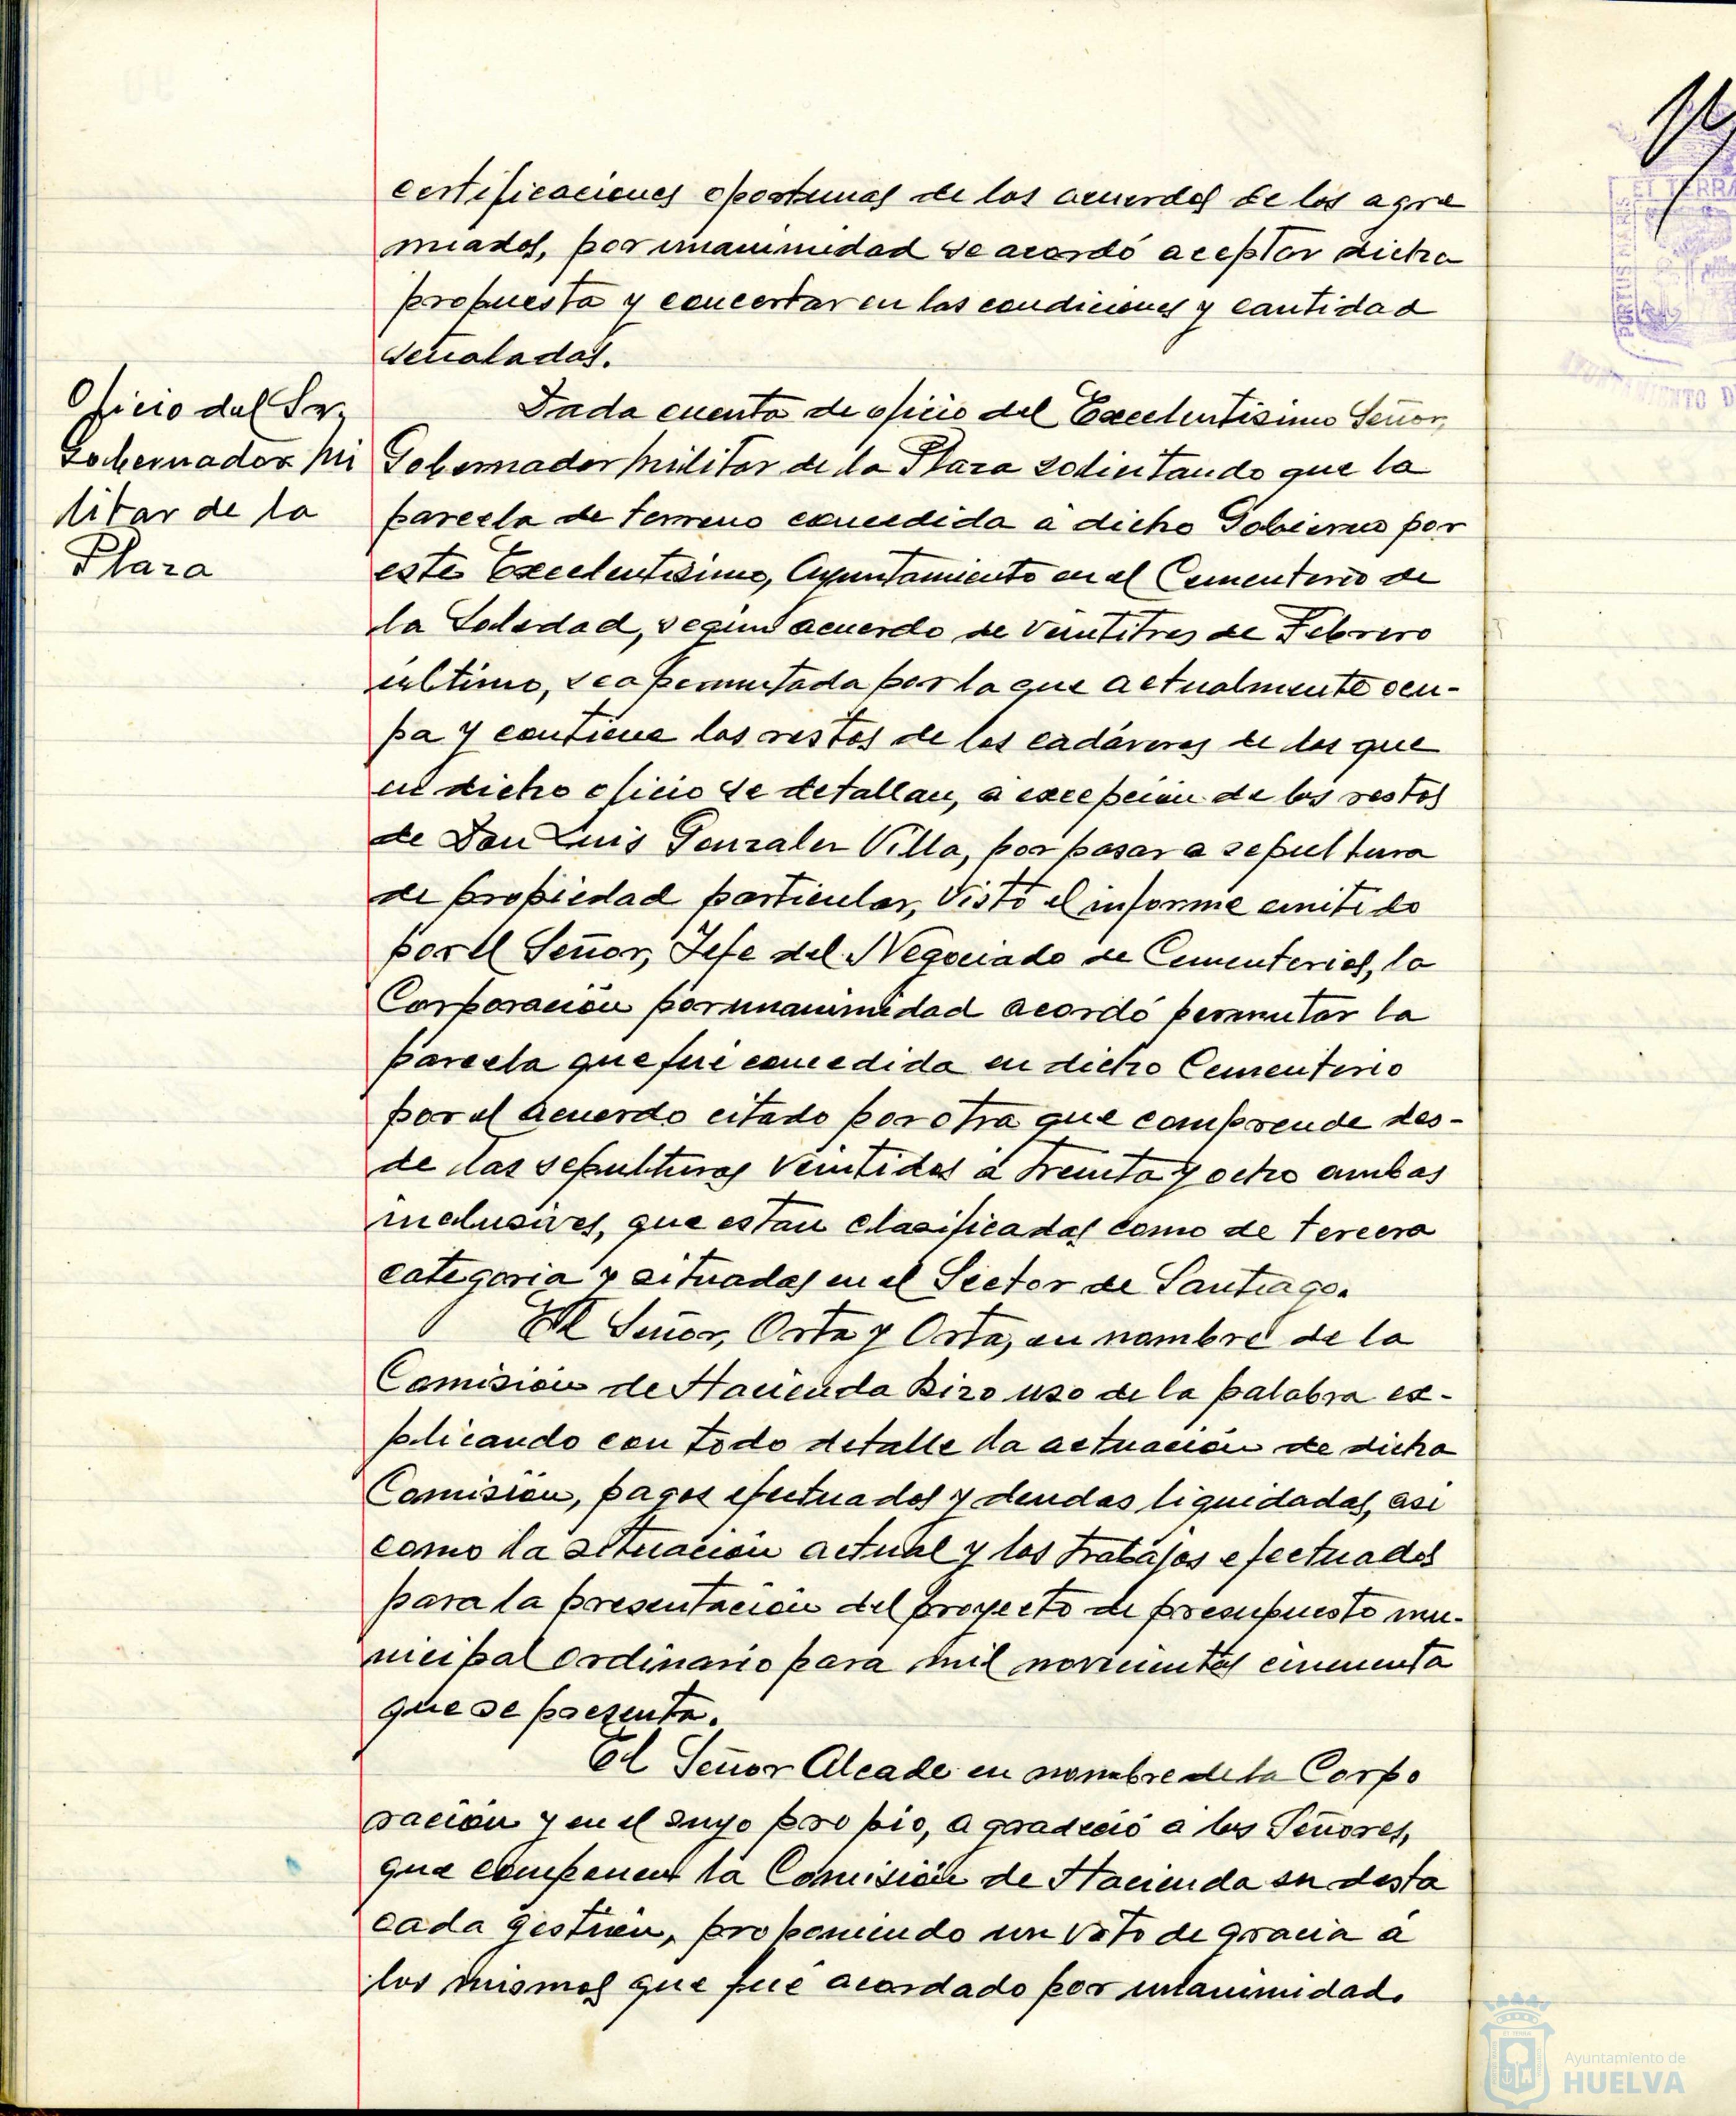 certificaciones oportunas de los acuerdos de los agre
miados, por unanimidad se acordó aceptar dicha
propuesta y concertar en las condiciones y cantidad
señaladas.
Oficio del Sr.
Gobernador Mi
litar de la
Plaza
Dada cuenta de oficio del Excelentisimo Señor,
Gobernador Militar de la Plaza solicitando que la
parcela de terreno concedida a dicho Gobierno por
este Excelentisimo, Ayuntamiento en el Cementerio de
la Soledad, según acuerdo de veintitres de Febrero
último, sea permutada por la que actualmente ocu-
pa y contiene los restos de los cadáveres de los que
en dicho oficio se detallan, a excepción de los restos
de Don Luis Gonzalez Villa, por pasar a sepultura
de propiedad particular, Visto el informe emitido
por el Señor, Jefe del Negociado de Cementerios, la
Corporación por unanimidad acordó permutar la
parcela que fué concedida en dicho Cementerio
por el acuerdo citado por otra que comprende des-
de las sepulturas veintidos a treinta y ocho ambas
inclusives, que estan clasificadas como de tercera
categoria y situadas en el Sector de Santiago.
El Señor, Orta y Orta, en nombre de la
Comisión de Hacienda hizo uso de la palabra ex-
plicando con todo detalle la actuación de dicha
Comisión, pagos efectuados y deudas liquidadas, asi
como la situación actual y los trabajos efectuados
para la presentación del proyecto de presupuesto mu-
nicipal ordinario para mil novecientos cincuenta
que se presenta.
El Señor Alcade en nombre de la Corpo
ración y en el suyo propio, agradeció a los Señores,
que componen la Comisión de Hacienda su desta
cada gestión, proponiendo un voto de gracia a
los mismos que fué acordado por unanimidad.
ET TERRA
PORTUS MARIS
AYUNTAMIENTO D
Ayuntamiento de
HUELVA